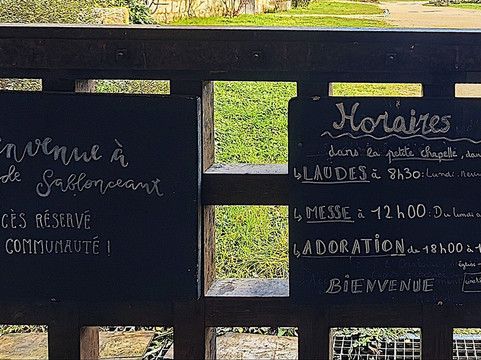 envenue à
de Sablonceaux
CÈS RÉSERVÉ
COMMUNAUTÉ !
Horaires
dans la petite chapelle, dan
↳ LAUDES à 8h30 : Lundi. Mercre
↳ MESSE à 12h00 : Du lundi a
↳ ADORATION de 18h00 à 1
église
BIENVENUE